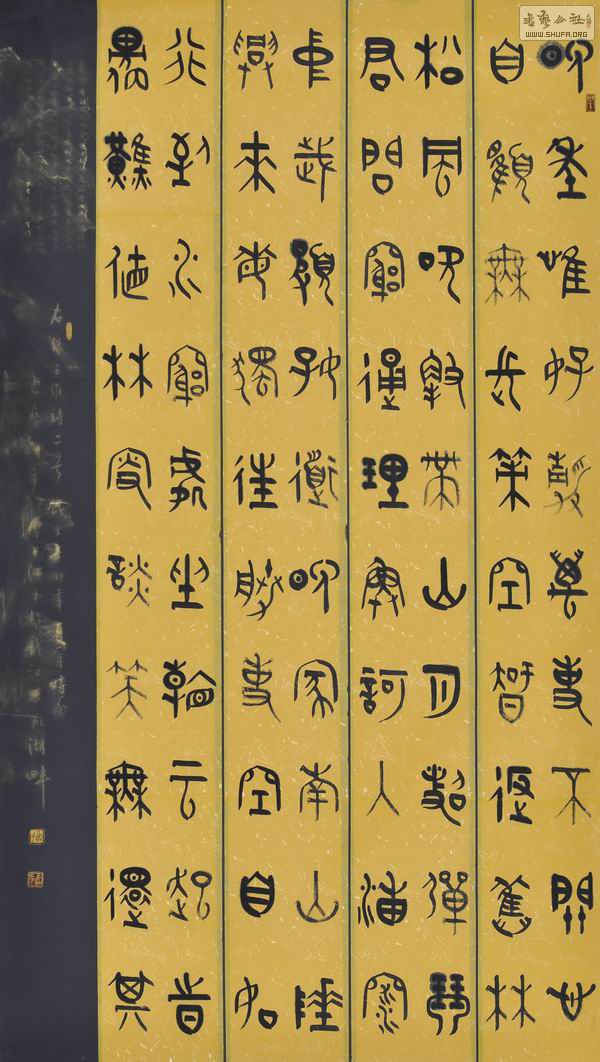 書藝公社
WWW.SHUFA.ORG
晚年唯好靜萬事不關心
自顧無長策空知返舊林
松風吹解帶山月照彈琴
君問窮通理漁歌入浦深
中歲頗好道晚家南山陲
興來每獨往勝事空自知
行到水窮處坐看云起時
偶然值林叟談笑無還期
右錄王維詩二首 卯年夏月時在
湖畔